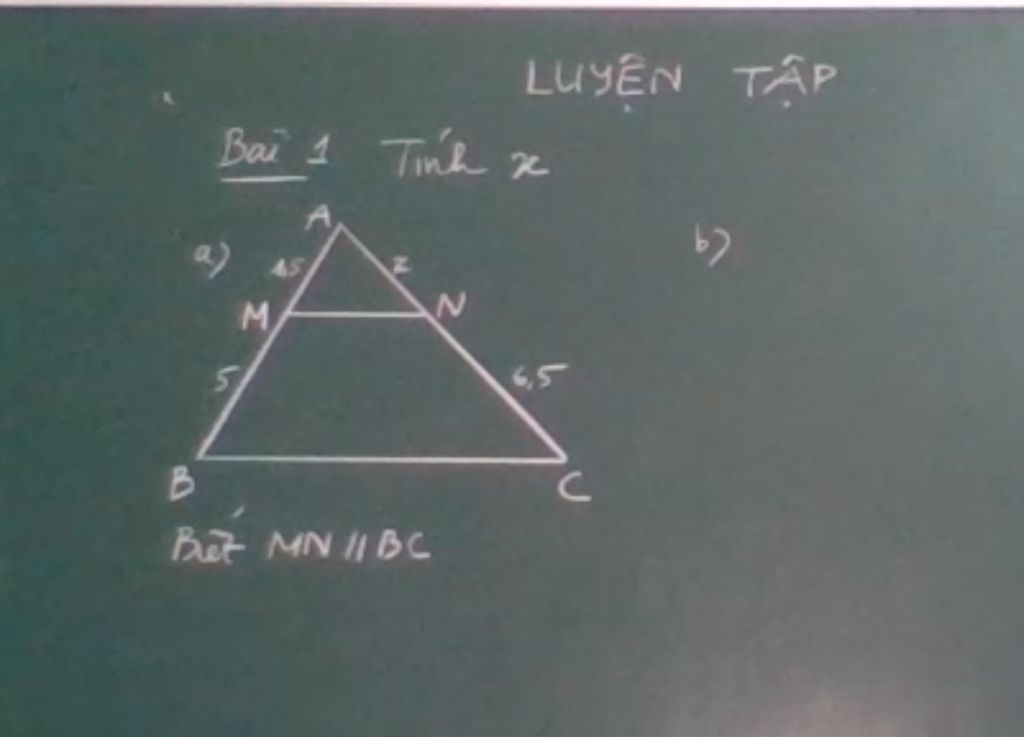 LUYỆN TẬP
Bài 1 Tính x
A
a)
b)
x
M
N
5
6,5
B
C
Biết MN // BC